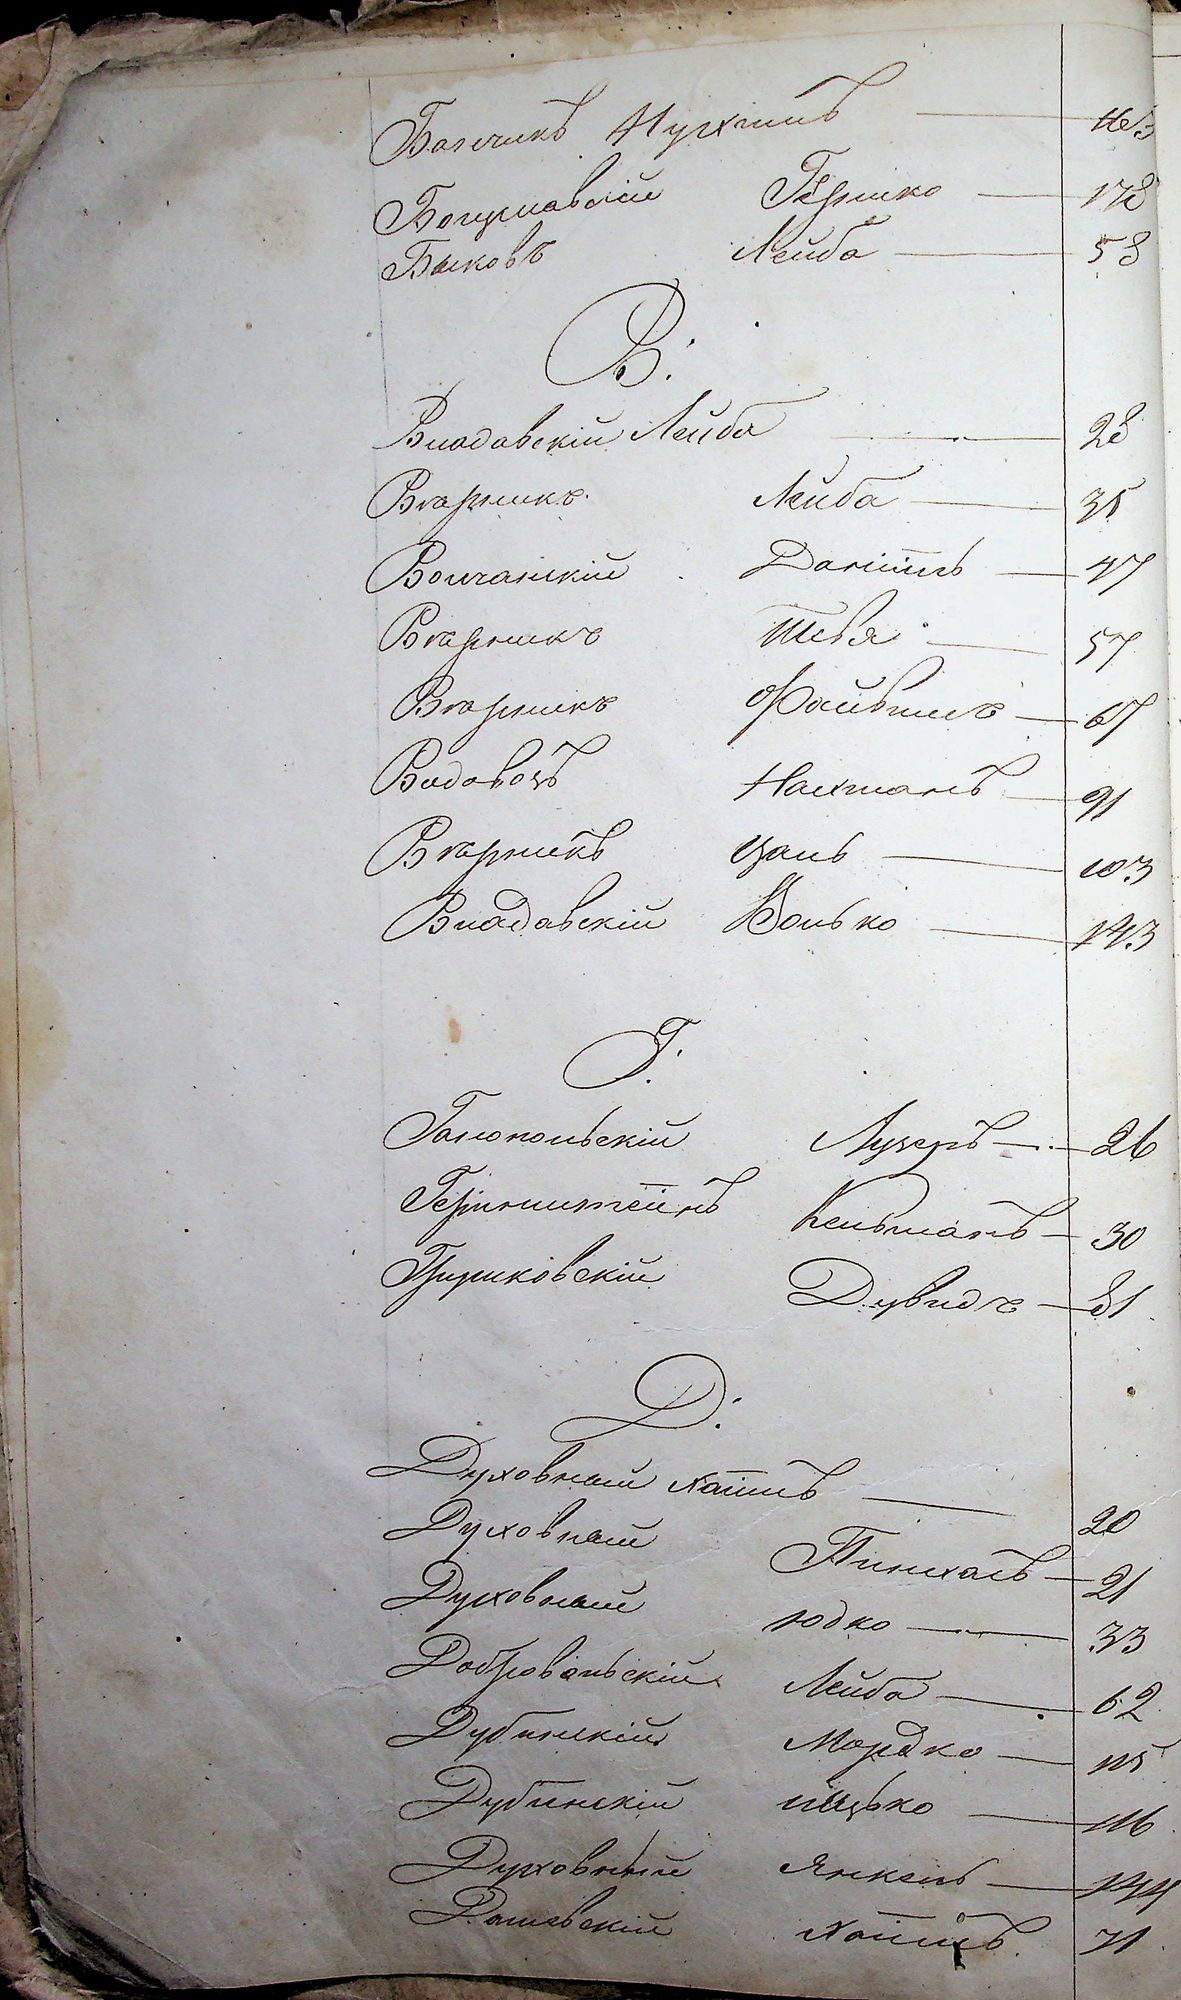 Богуславскій Гершко — 178
Быковъ Лейба — 58
В.
Владавскій Лейба — 28
Вгарникъ Лейба — 35
Волчанскій Даніилъ — 47
Вгарникъ Тевя — 57
Вгарникъ Файвишъ — 67
Видовецъ Нахманъ — 91
Вгарникъ — 103
Владавскій Волько — 143
Г.
Галопольскій Лузеръ — 26
Геринштейнъ Кельманъ — 30
Гершковскій Дувидъ — 81
Д.
Духовный Хаимъ — 20
Духовный Пинхасъ — 21
Духовный Юдко — 33
Добровольскій Лейба — 62
Дубинскій Мордко — 115
Дубинскій Ицько — 116
Духовный Янкель — 144
Дашевскій Хаимъ 71